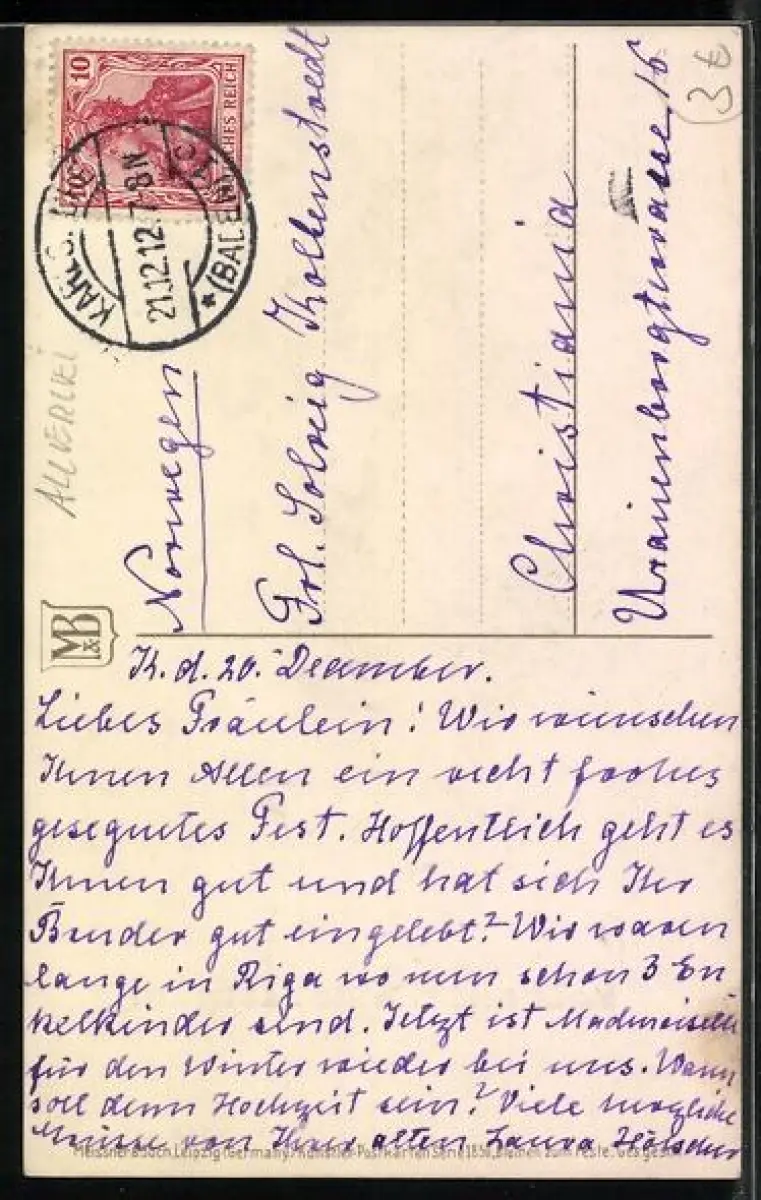 10
DEUTSCHES REICH
KARLSRUHE
21.12.12.7-8N
* (BADEN)
3 €
ALLERLEI
M&B
Norwegen
Frl. Solveig Kolbenstvedt
Christiania
Uranienborgterrasse 16
K. d. 20. December.
Liebes Fräulein! Wir wünschen
Ihnen Allen ein recht frohes
gesegnetes Fest. Hoffentlich geht es
Ihnen gut und hat sich Ihr
Bruder gut eingelebt? Wir waren
lange in Riga wo nun schon 3 En
kelkinder sind. Jetzt ist Mademoiselle
für den Winter wieder bei uns. Wann
soll denn Hochzeit sein? Viele herzliche
Grüsse von Ihrer alten Laura Hölscher
Meissner & Buch, Leipzig (Germany) Künstler-Postkarten Serie 1838, Blumen zum Feste. Ges. gesch.